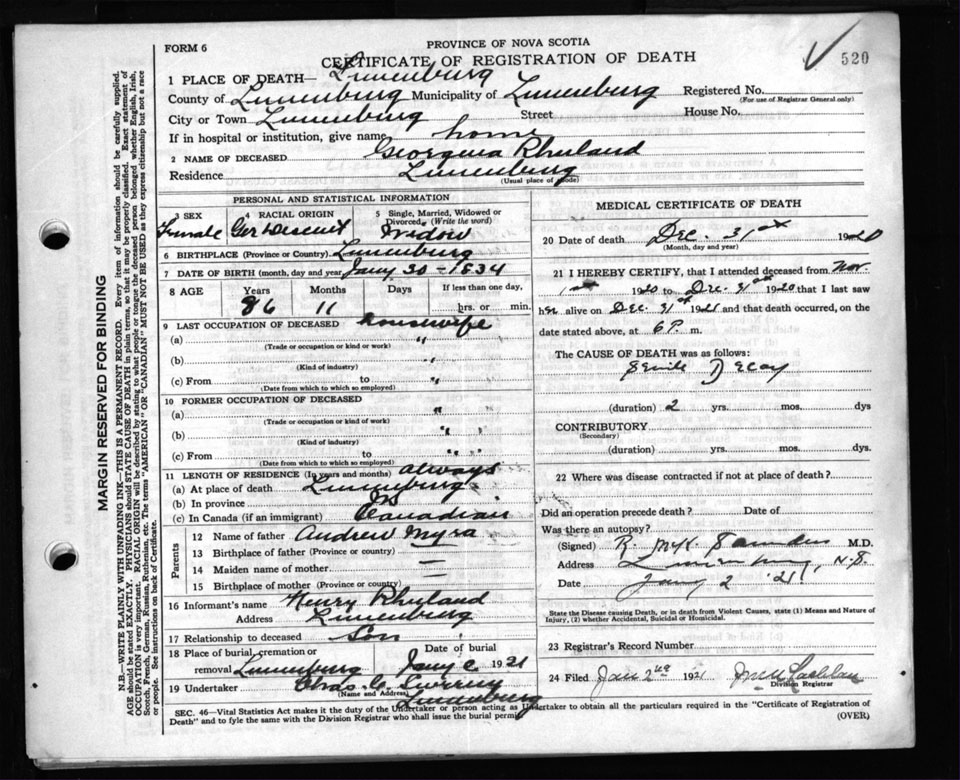 FORM 6
PROVINCE OF NOVA SCOTIA
CERTIFICATE OF REGISTRATION OF DEATH
520
1 PLACE OF DEATH— Lunenburg
County of Lunenburg Municipality of Lunenburg Registered No.
(For use of Registrar General only)
City or Town Lunenburg Street House No.
If in hospital or institution, give name home
2 NAME OF DECEASED Georgina Rhuland
Residence Lunenburg
(Usual place of abode)
PERSONAL AND STATISTICAL INFORMATION
3 SEX Female
4 RACIAL ORIGIN Ger Descent
5 Single, Married, Widowed or Divorced (Write the word) Widow
6 BIRTHPLACE (Province or Country) Lunenburg
7 DATE OF BIRTH (month, day and year) Jany 30 - 1834
8 AGE Years Months Days If less than one day,
86 11 hrs. or min.
9 LAST OCCUPATION OF DECEASED housewife
(a) "
(Trade or occupation or kind or work)
(b) "
(Kind of industry)
(c) From to "
(Date from which to which so employed)
10 FORMER OCCUPATION OF DECEASED
(a) "
(Trade or occupation or kind of work)
(b) " "
(Kind of industry)
(c) From to "
(Date from which to which so employed)
11 LENGTH OF RESIDENCE (In years and months) always
(a) At place of death Lunenburg
(b) In province NS
(c) In Canada (if an immigrant) Canadian
Parents
12 Name of father Andrew Myra
13 Birthplace of father (Province or country) —
14 Maiden name of mother —
15 Birthplace of mother (Province or country) —
16 Informant's name Henry Rhuland
Address Lunenburg
17 Relationship to deceased Son
18 Place of burial, cremation or removal Lunenburg
Date of burial Jany 1921
19 Undertaker Chas.
(Name and Address) Lunenburg
MEDICAL CERTIFICATE OF DEATH
20 Date of death Dec. 31st 1920
(Month, day and year)
21 I HEREBY CERTIFY, that I attended deceased from Nov
1st 1920 to Dec. 31st 1920 that I last saw
her alive on Dec. 31st 1921 and that death occurred, on the
date stated above, at 6 P. m.
The CAUSE OF DEATH was as follows:
Senile Decay
(duration) 2 yrs. mos. dys
CONTRIBUTORY
(Secondary)
(duration) yrs. mos. dys.
22 Where was disease contracted if not at place of death?
Did an operation precede death? Date of
Was there an autopsy?
(Signed) R. McK. Saunders M.D.
Address Lunenburg, N.S.
Date Jany 2 '21
State the Disease causing Death, or in death from Violent Causes, state (1) Means and Nature of
Injury, (2) whether Accidental, Suicidal or Homicidal.
23 Registrar's Record Number
24 Filed Jan 2nd 1921
Division Registrar
SEC. 46—Vital Statistics Act makes it the duty of the Undertaker or person acting as Undertaker to obtain all the particulars required in the "Certificate of Registration of
Death" and to fyle the same with the Division Registrar who shall issue the burial permit.
(OVER)
MARGIN RESERVED FOR BINDING
N.B.—WRITE PLAINLY WITH UNFADING INK—THIS IS A PERMANENT RECORD. Every item of information should be carefully supplied.
AGE should be stated EXACTLY. PHYSICIANS should STATE CAUSE OF DEATH in plain terms, so that it may be properly classified. Exact statement of
OCCUPATION is very important. RACIAL ORIGIN will be described by stating to what people or tongue the deceased person belonged whether English, Irish,
Scotch, French, German, Russian, Ruthenian, etc. The terms "AMERICAN" OR "CANADIAN" MUST NOT BE USED as they express citizenship but not a race
or people. See instructions on back of Certificate.